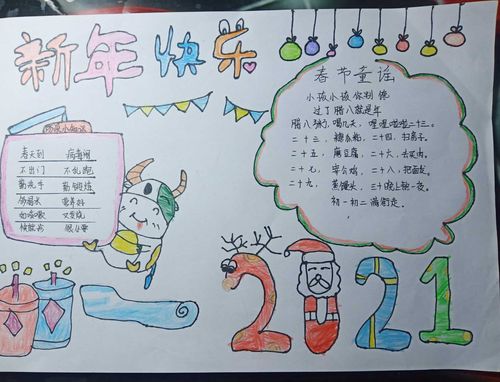 新年快乐
春节童谣
小孩小孩你别馋
过了腊八就是年
腊八粥，喝几天，哩哩啦啦二十三。
二十三，糖瓜粘，二十四，扫房子。
二十五，磨豆腐，二十六，去买肉。
二十七，宰公鸡，二十八，把面发。
二十九，蒸馒头，三十晚上熬一夜。
初一初二满街走。
防疫小知识
春天到 病毒闹
不出门 不乱跑
勤洗手 勤锻炼
2021